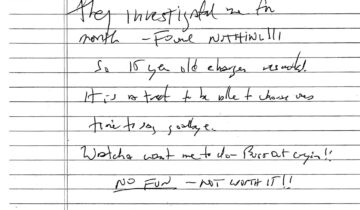 they investigated me for
month – Found NOTHING!!!
So 15 year old charges resulted.
It is a treat to be able to choose one's
time to say goodbye.
Watcha want me to do – Burst out cryin!!
NO FUN – NOT WORTH IT!!